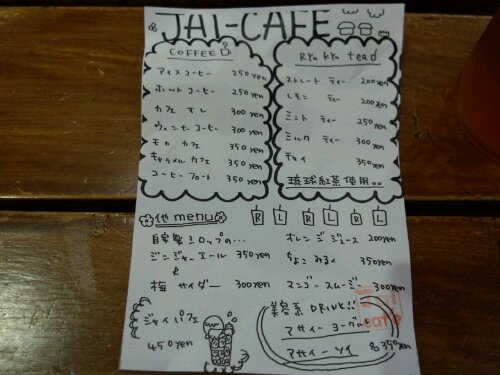 JAI-CAFE
COFFEE
アイスコーヒー 250yen
ホットコーヒー 250yen
カフェ オレ 300yen
ウィンナーコーヒー 300yen
モカ カフェ 350yen
キャラメルカフェ 350yen
コーヒーフロート 350yen
Ryu kyu tea
ストレート ティー 200yen
レモン ティー 200yen
ミント ティー 250yen
ミルク ティー 300yen
チャイ 350yen
琉球紅茶使用。。
他 menu
R L R L R L
自家製シロップの…
ジンジャーエール 350yen
梅 サイダー 300yen
オレンジジュース 200yen
ちょこみるく 350yen
マンゴースムージー 300yen
ジャイパフェ
450yen
美容系 DRINK!!
アサイーヨーグルト
アサイーソイ 各350yen